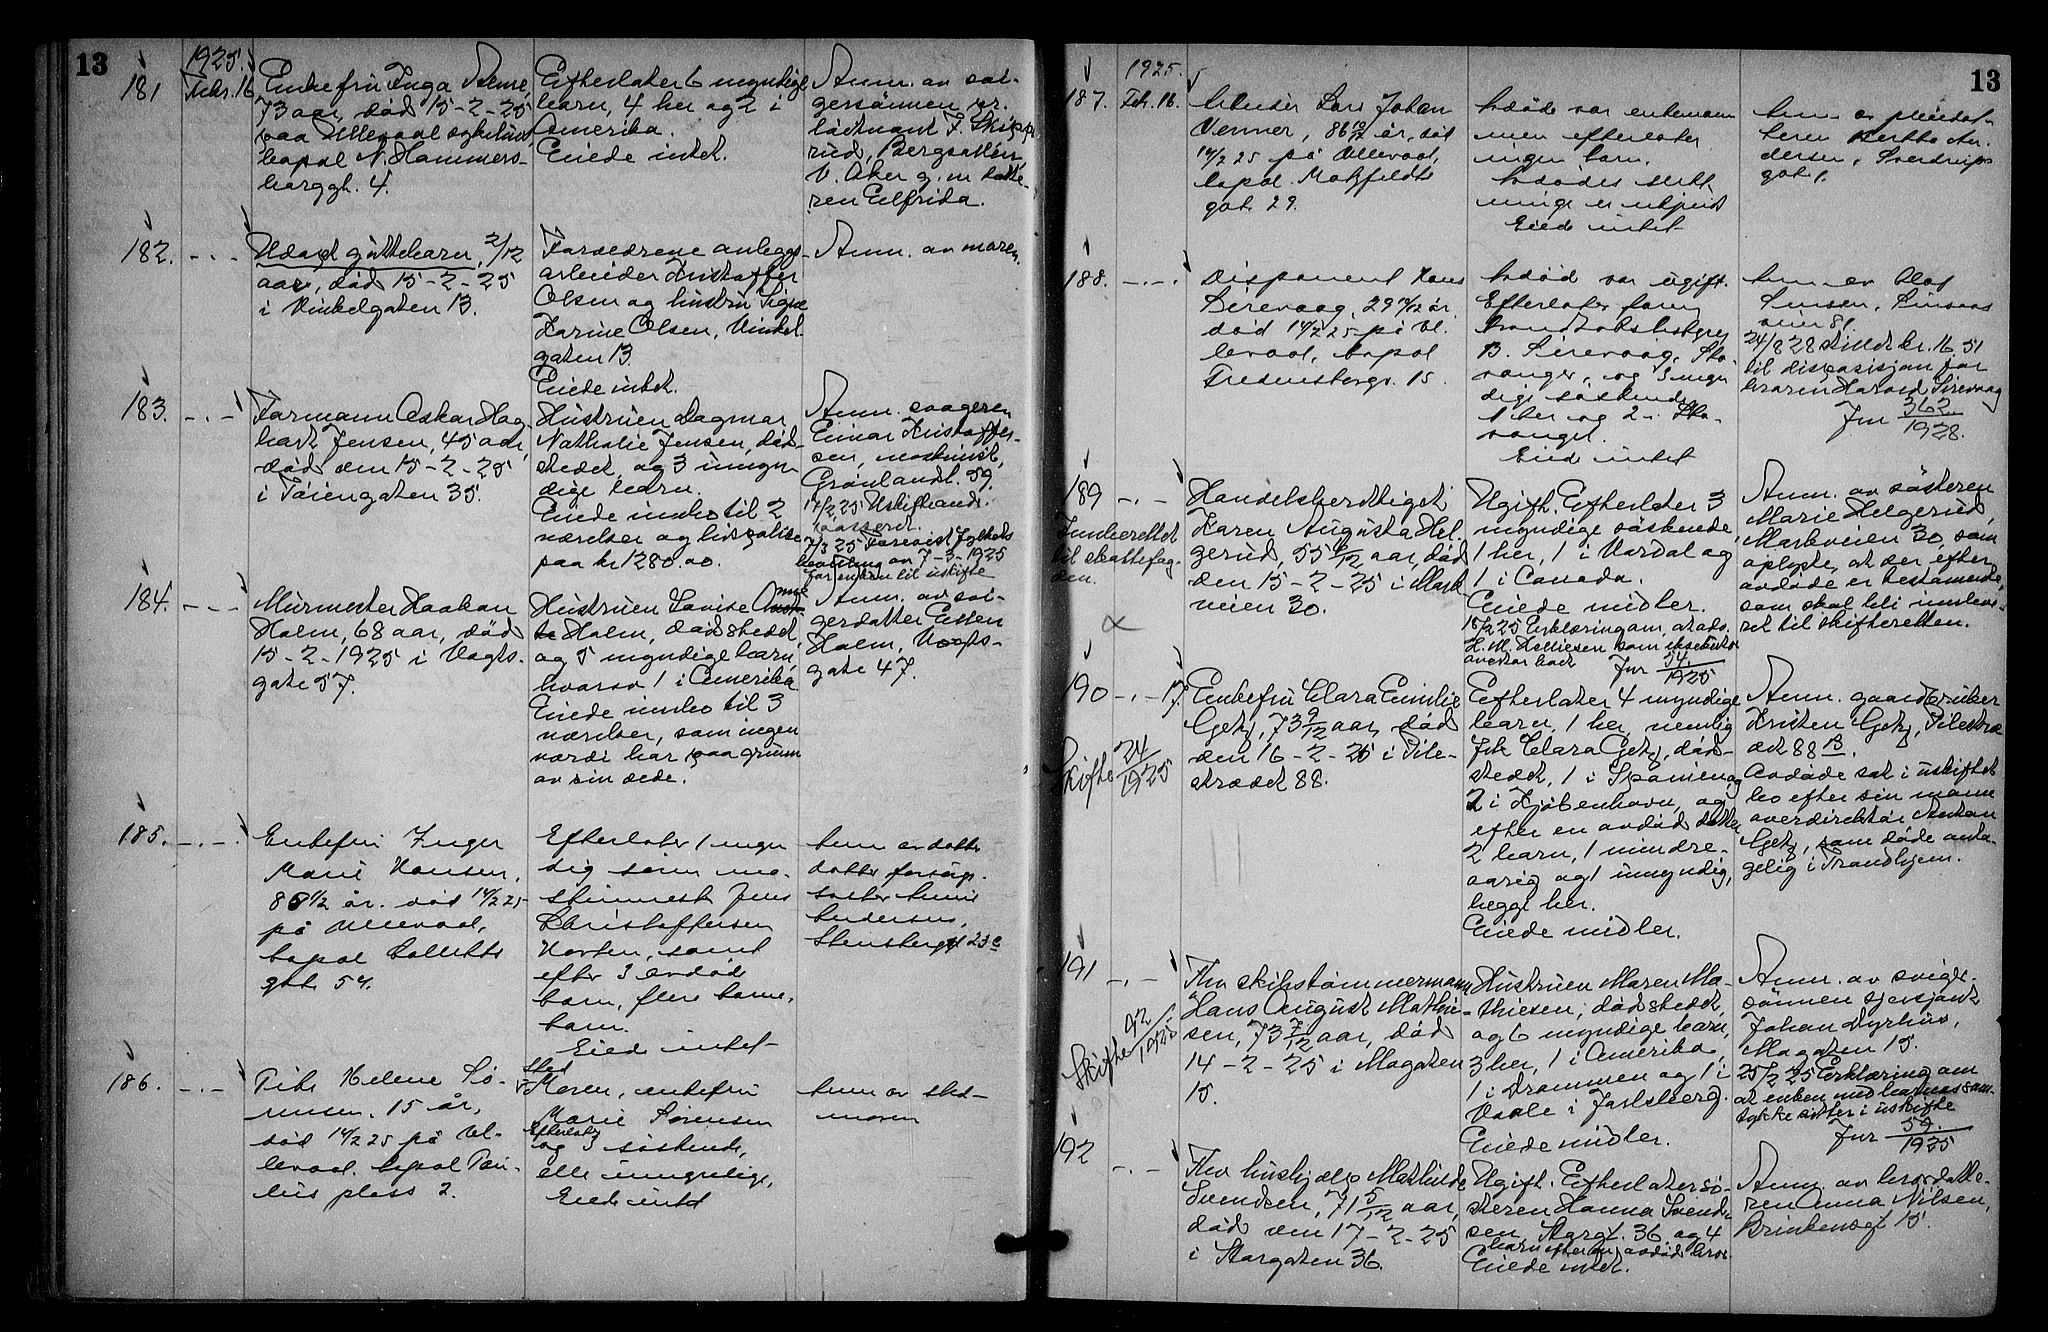 13
1925.
181
Febr. 16
Enkefru Inga
73 aar, død 15-2-25
paa Ullevaal sykehus,
bopæl N. Hammers-
borggt. 4.
Efterlater 6 myndige
barn, 4 her og 2 i
Amerika.
Eiede intet.
Anm. av svi-
gersønnen, pr.
løitnant F.
rud,
V. Aker g. m. datte-
ren Elfrida.
182. - - -
Udøpt guttebarn, 2/12
aar, død 15-2-25
i Vinkelgaten 13.
Forældrene anlegs-
arbeider Kristoffer
Olsen og hustru Signe
Karine Olsen, Vinkel-
gaten 13
Eiede intet.
Anm. av moren.
183. - . -
Formann Oskar Hag-
bart Jensen, 45 aar,
død den 15-2-25
i Tøiengaten 35.
Hustruen Dagmar
Nathalie Jensen, død-
stedet, og 3 umyn-
dige barn.
Eiede innbo til 2
værelser og livspolise
paa kr 1280.00.
Anm. svogeren
Einar Kristoffer-
sen, maskinist,
Grønlandsl. 59.
17/2 25 Uskifteand.
7/3 25 Forevist Fylkets
bevilling av 7-3-1925
for enken til uskifte
184. - - -
Murmester Haakon
Holm, 68 aar, død
15-2-1925 i Vogts-
gate 57.
Hustruen Lovise Anne
Holm, dødstedet,
og 5 myndige barn,
hvorav 1 i Amerika
Eiede innbo til 3
værelser, som ingen
værdi har paa grunn
av sin ælde.
Anm. av svi-
gerdatter Ellen
Holm, Vogts-
gate 47.
185. - . - .
Enkefru Inger
Marie Hansen,
86 1/2 år. død 14/2 25
på Ullevaal,
bopæl Colletts
gt. 54.
Efterlater 1 myn
dig sønn ma-
skinmest. Jens
Kristoffersen
Horten, samt
efter 3 avdød
barn, flere barne-
barn.
Eiede intet
Anm av datter
datter forsørg.
søster
Andersen,
Stensberggt 23 c
186. - . -
Helene Sø-
rensen. 15 år,
død 14/2 25 på Ul-
levaal. bopæl Pau-
lus plass 2.
Sted
Moren, enkefru
Marie Sørensen
Efterlater
og 3 søskende,
alle umyndige,
Eiede intet
Anm av sted-
moren
1925.
13
187. Feb. 16.
Arbeider Lars Johan
Venner, 86 10/12 år, død
14/2 25 på Ullevaal,
bopæl. Motzfeldts
gat. 29.
Avdøde var enkemann
men efterlater
ingen barn.
Avdødes slekt-
ninge er ukjent
Eiede intet
Anm av pleiedat-
teren Bertha An-
dersen, Sverdrups
gat 1.
188. - . - .
Disponent Hans
Sirevaag, 29 år
død 14/2 25 på Ul-
levaal, bopæl
Fredensborgv. 15.
Avdød var ugift.
Efterlater foren
B. Sirevaag, Sta-
vanger, og 3 myn
dige søskende
1 her og 2 i Sta-
vanger.
Eiede intet
Anm av Olaf
veien 81.
24/8 28 stillet kr. 16.51
til disposisjon for
broren Harald Sirevaag
Jnr 362/1928.
189 - . -
Innberettet
til skattefog-
den.
Handelsberettiget
Karen Augusta Hel-
gerud, 55 aar, død
den 15-2-25 i Mark-
veien 30.
Ugift. Efterlater 3
myndige søskende,
1 her, 1 i Vardal og
1 i Canada.
Eiede midler.
18/2 25 Erklæring om, at ads.
som eksekutor
overtar boet Jnr 54/1925
Anm. av søsteren
Marie Helgerud,
Markveien 30, som
oplyste, at der efter
avdøde er testamente,
som skal bli innleve-
ret til skifteretten.
190 - . - 17.
Skifte 24/1925
Enkefru Clara Emilie
Getz, 73 9/12 aar, død
den 16-2-25 i Pile-
strædet 88.
Efterlater 4 myndige
barn, 1 her, nemlig
frk Clara Getz, død-
stedet, 1 i Spanien og
2 i Kjøbenhavn, og
efter en avdød datter
2 barn, 1 mindre-
aarig og 1 umyndig,
begge her.
Eiede midler.
Anm. gaardbruker
Kristen Getz, Pilestræ-
det 88 B.
Avdøde sat i uskiftet
bo efter sin mann
overdirektør Anton
Getz, som døde anta-
gelig i Trondhjem.
191 - . -
Skifte 92/1925
Fhv skibstømmermann
Hans August Mathie-
sen, 73 7/12 aar, død
14-2-25 i Maogaten
15.
Hustruen Maren Ma-
thiesen, dødstedet,
og 6 myndige barn,
3 her, 1 i Amerika,
1 i Drammen og 1 i
Vaale i Jarlsberg.
Eiede midler.
Anm. av sviger-
sønnen sersjant
Johan Myrhus,
Maogaten 15.
25/2 25 Erklæring om
at enken med barnas sam-
tykke sitter i uskifte
Jnr 59./1925
192 - . -
Fhv hushjelp Mathilde
Svendsen, 71 5/12 aar,
død den 17-2-25
i Storgaten 36.
Ugift. Efterlater sø-
steren Hanna Svend-
sen, Storgt. 36 og 4
barn efter en avdød bror
Eiede intet.
Anm. av brordatte-
ren Anna Nilsen,
Brinkensgt 15.